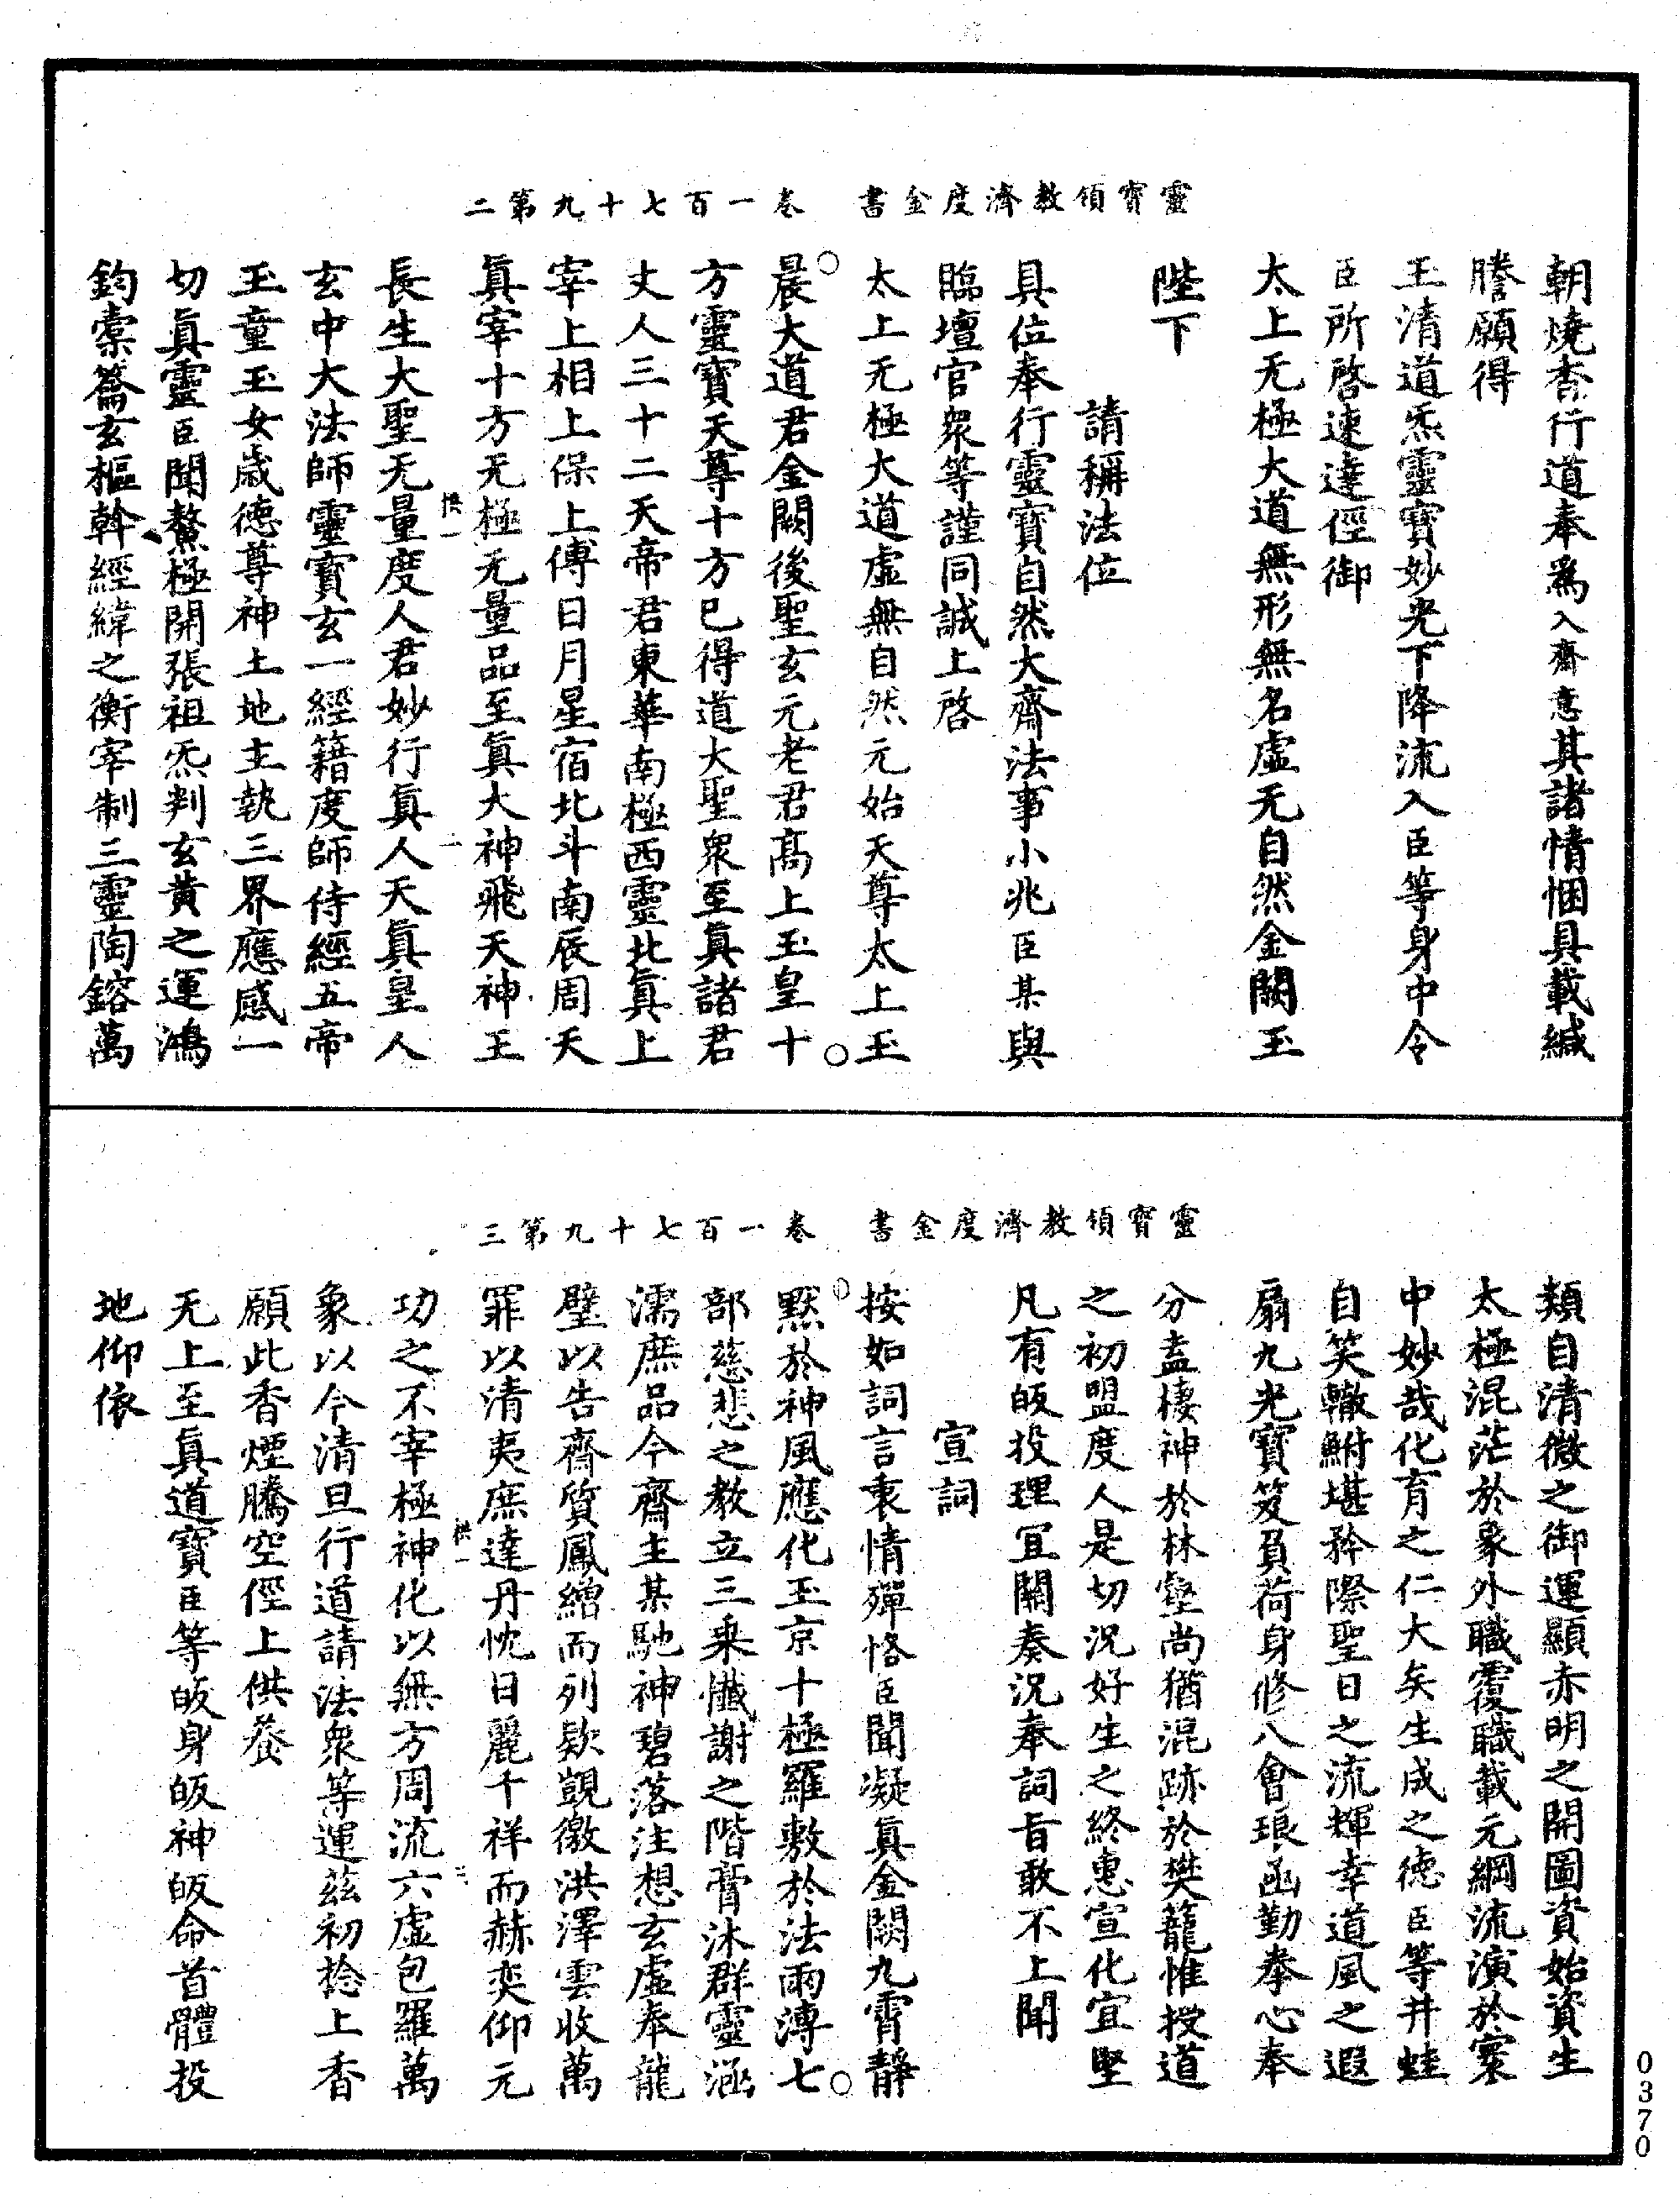 靈寶領教濟度金書 卷一百七十九第二
朝燒香行道奉爲入齋意其諸情悃具載緘
謄願得
玉清道炁靈寶妙光下降流入臣等身中令
臣所啓速達徑御
太上无極大道無形無名虛无自然金闕玉
陛下
請稱法位
具位奉行靈寶自然大齋法事小兆臣某與
臨壇官衆等謹同誠上啓
太上无極大道虛無自然元始天尊太上玉
晨大道君金闕後聖玄元老君高上玉皇十
方靈寶天尊十方已得道大聖衆至眞諸君
丈人三十二天帝君東華南極西靈北眞上
宰上相上保上傅日月星宿北斗南辰周天
眞宰十方无極无量品至眞大神飛天神王
長生大聖无量度人君妙行眞人天眞皇人
玄中大法師靈寶玄一經籍度師侍經五帝
玉童玉女歲德尊神土地主執三界應感一
切眞靈臣聞鰲極開張祖炁判玄黃之運鴻
鈞橐籥玄樞斡經緯之衡宰制三靈陶鎔萬
靈寶領教濟度金書 卷一百七十九第三
類自清微之御運顯赤明之開圖資始資生
太極混茫於象外職覆職載元綱流演於寰
中妙哉化育之仁大矣生成之德臣等井蛙
自笑轍鮒堪矜際聖日之流輝幸道風之遐
扇九光寶笈負荷身修八會琅函勤拳心奉
分盍棲神於林壑尚猶混跡於樊籠惟授道
之初盟度人是切況好生之終惠宣化宜堅
凡有皈投理宜關奏況奉詞旨敢不上聞
宣詞
按如詞言衷情殫恪臣聞凝眞金闕九霄靜
默於神風應化玉京十極羅敷於法雨溥七
部慈悲之敎立三乘懺謝之階膏沐群靈涵
濡庶品今齋主某馳神碧落注想玄虛奉龍
璧以告齋質鳳繒而列欵覬徼洪澤雲收萬
罪以清夷庶達丹忱日麗千祥而赫奕仰元
功之不宰極神化以無方周流六虛包羅萬
象以今清旦行道請法衆等運茲初捻上香
願此香煙騰空徑上供養
无上至眞道寶臣等皈身皈神皈命首體投
地仰依
0370